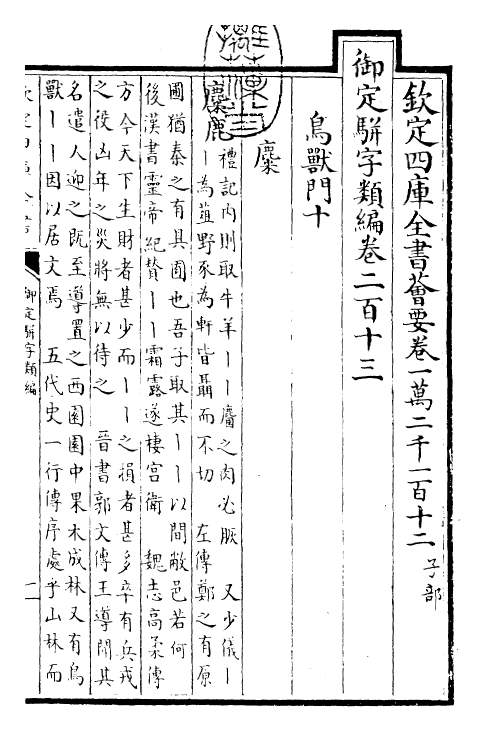 欽定四庫全書薈要卷一萬二千一百十二 子部
御定駢字類編卷二百十三
鳥獸門十
麋
麋鹿 禮記内則取牛羊丨丨麕之肉必脄 又少儀丨
丨為菹野豕為軒皆聶而不切 左傳鄭之有原
圃猶秦之有具囿也吾子取其丨丨以間敝邑若何
後漢書靈帝紀贊丨丨霜露遂棲宫衛 魏志高柔傳
方今天下生財者甚少而丨丨之損者甚多卒有兵戎
之役凶年之災將無以待之 晉書郭文傳王導聞其
名遣人迎之既至導置之西園園中果木成林又有鳥
獸丨丨因以居文焉 五代史一行傳序處乎山林而
御定駢字類編
一